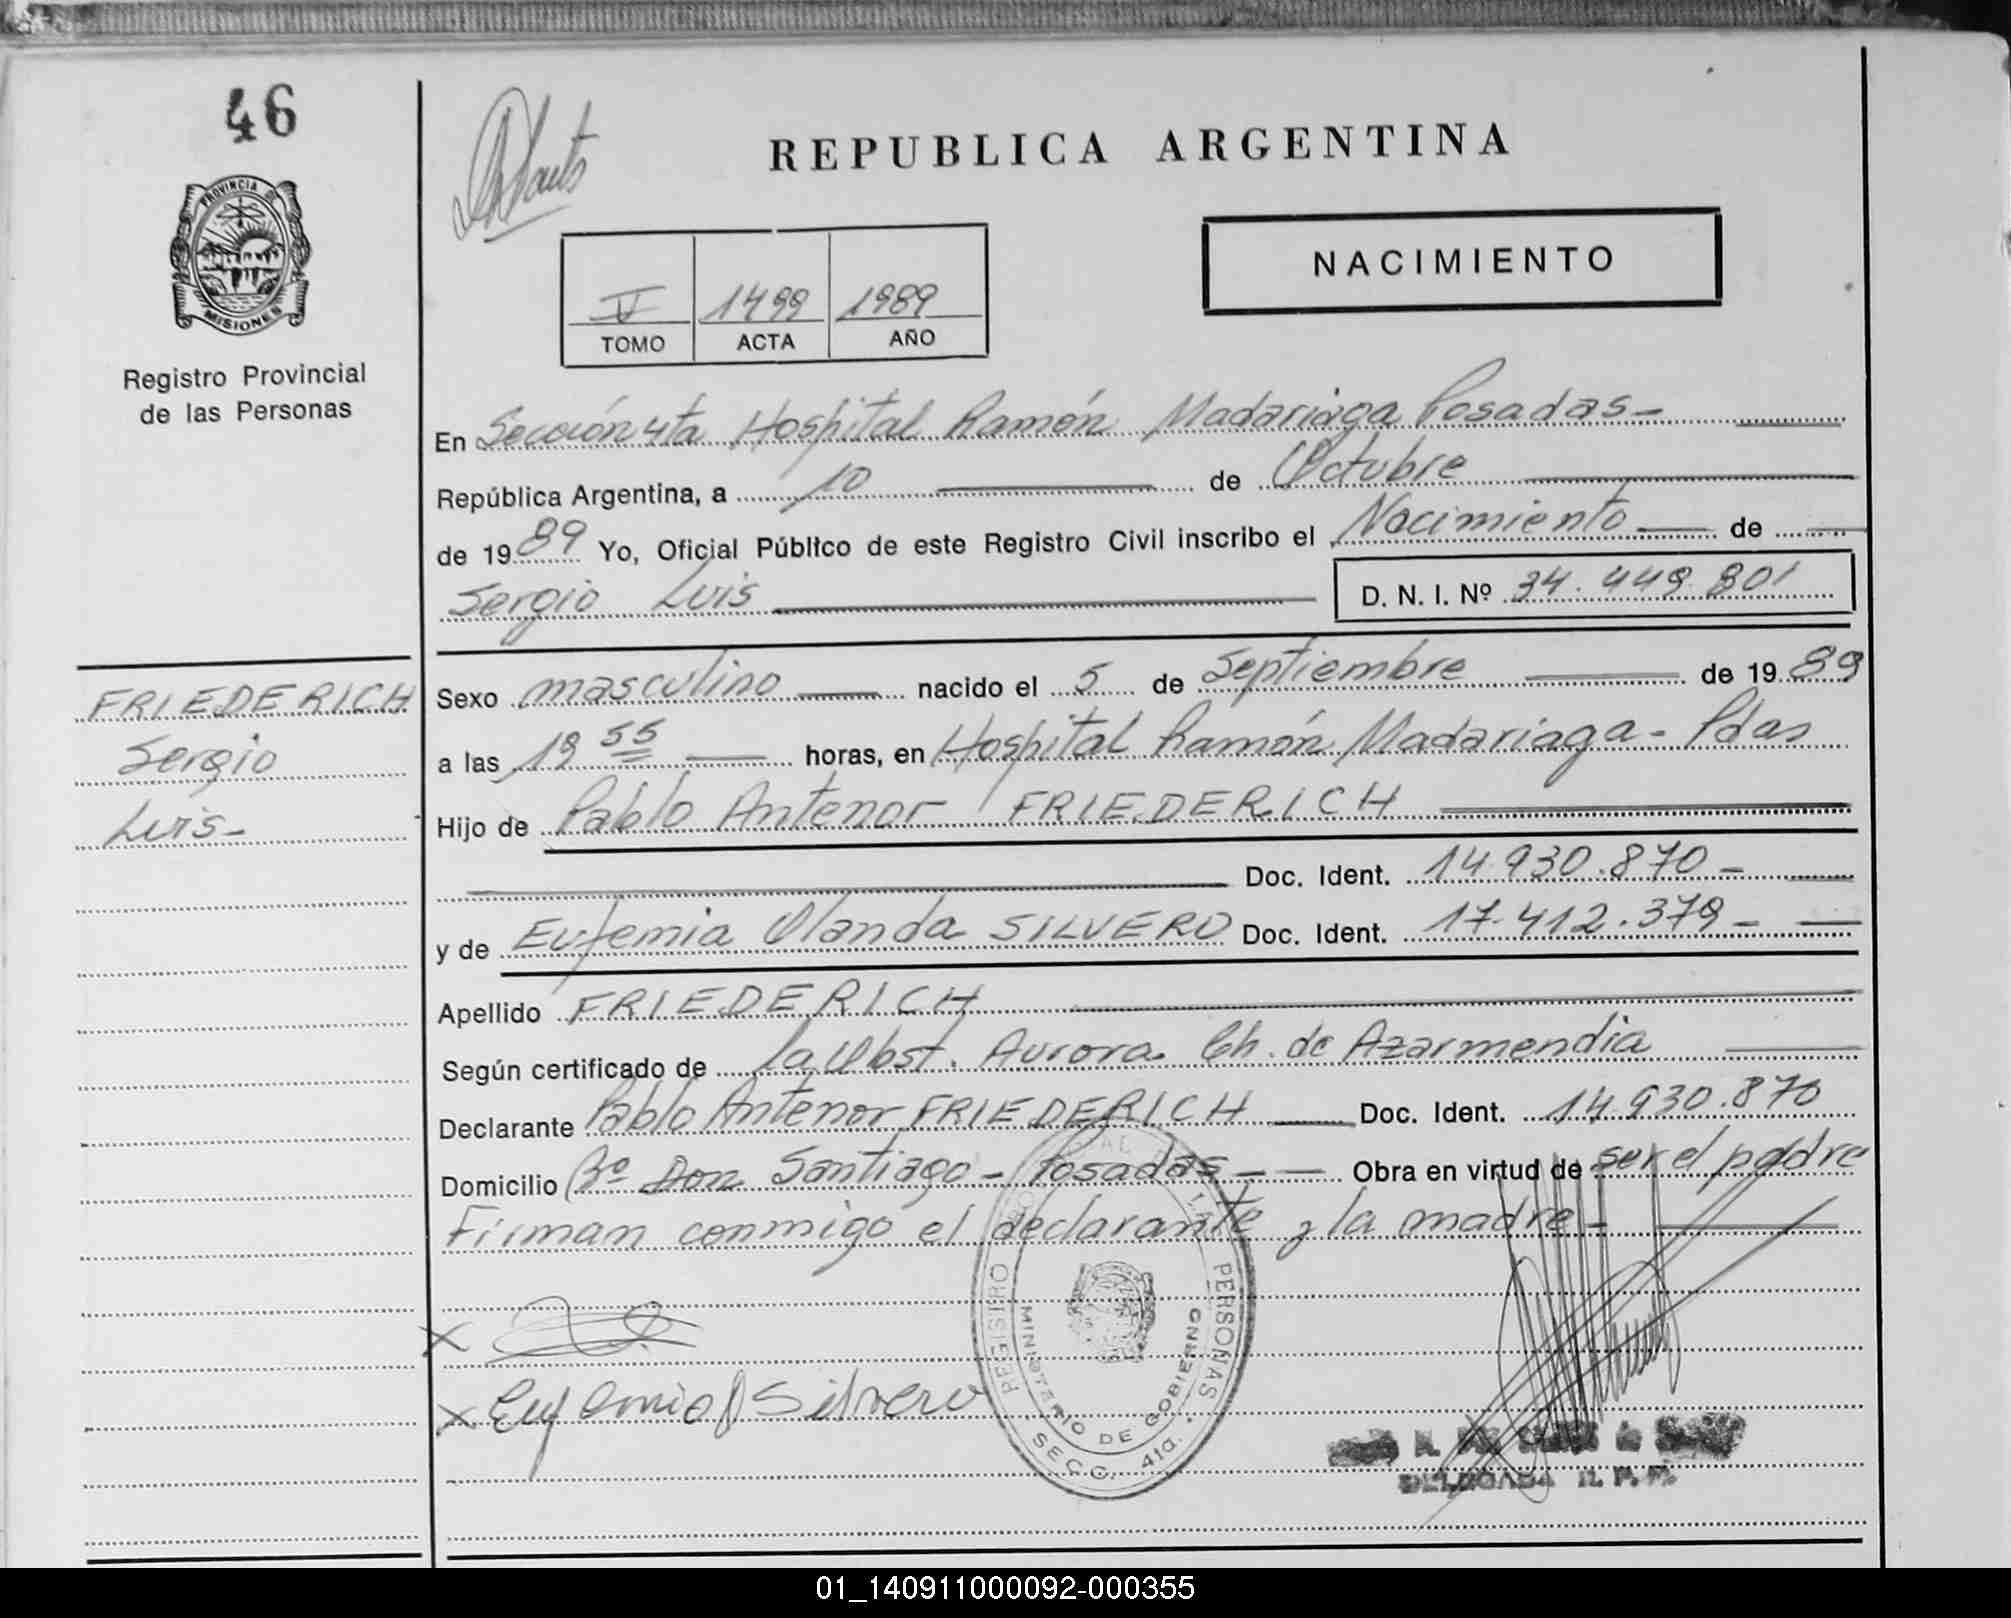 46
PROVINCIA DE
MISIONES
Registro Provincial
de las Personas
REPUBLICA ARGENTINA
NACIMIENTO
V 1499 1989
TOMO ACTA AÑO
En Sección 4ta Hospital Ramón Madariaga Posadas-
República Argentina, a 10 de Octubre
de 1989 Yo, Oficial Público de este Registro Civil inscribo el Nacimiento de
Sergio Luis D. N. I. Nº 34.449.801
FRIEDERICH
Sergio
Luis-
Sexo masculino nacido el 5 de Septiembre de 1989
a las 19 55 horas, en Hospital Ramón Madariaga - Pdas
Hijo de Pablo Antenor FRIEDERICH
Doc. Ident. 14.930.870-
y de Eufemia Olanda SILVERO Doc. Ident. 17.412.379-
Apellido FRIEDERICH
Según certificado de la Obst. Aurora Ch. de Azarmendia
Declarante Pablo Antenor FRIEDERICH Doc. Ident. 14.930.870
Domicilio Bº Don Santiago - Posadas - Obra en virtud de ser el padre
Firman conmigo el declarante y la madre-
X
X Eufemia O Silvero
REGISTRO PERSONAS
MINISTERIO DE GOBIERNO
SECC. 4ta.
DELEGADA R. P. P.
01_140911000092-000355